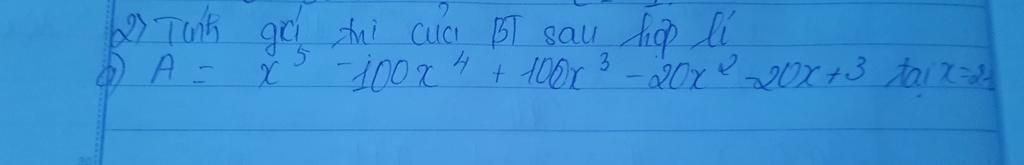 2) Tính giá trị của BT sau hợp lí
a) A = x⁵ -100x⁴ + 100x³ -20x² -20x+3 tại x=2